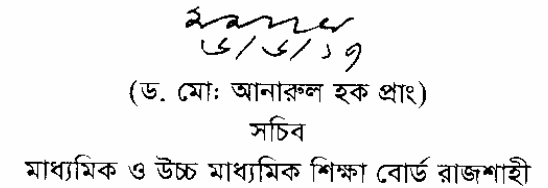 ৬/৬/১৭
(ড. মোঃ আনারুল হক প্রাং)
সচিব
মাধ্যমিক ও উচ্চ মাধ্যমিক শিক্ষা বোর্ড রাজশাহী